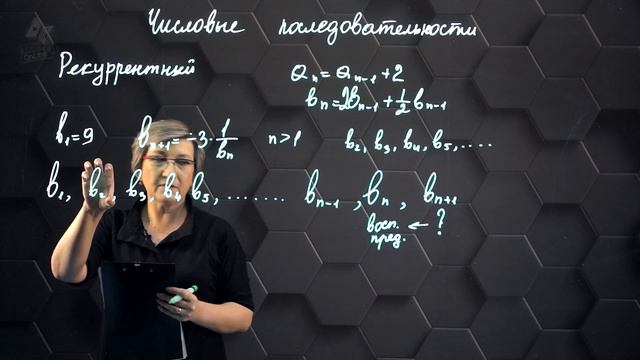 Числовые последовательности
Рекуррентный
aₙ = aₙ₋₁ + 2
bₙ = 2bₙ₋₁ + ½ bₙ₋₁
b₁ = 9 bₙ₊₁ = -3 · 1/bₙ n > 1 b₂, b₃, b₄, b₅, ....
b₁, b₂, b₃, b₄ b₅, ....... bₙ₋₁, bₙ, bₙ₊₁
восп. ← ?
пред.